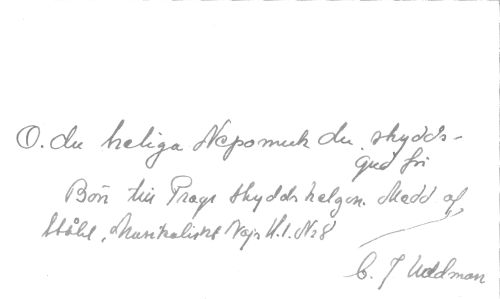 O. du heliga Nepomuk du skydds-
gud fri
Bön till Prags skyddshelgon. Medd af
Ståhl, Musikaliskt H. 1. N:28
C. J Uddman